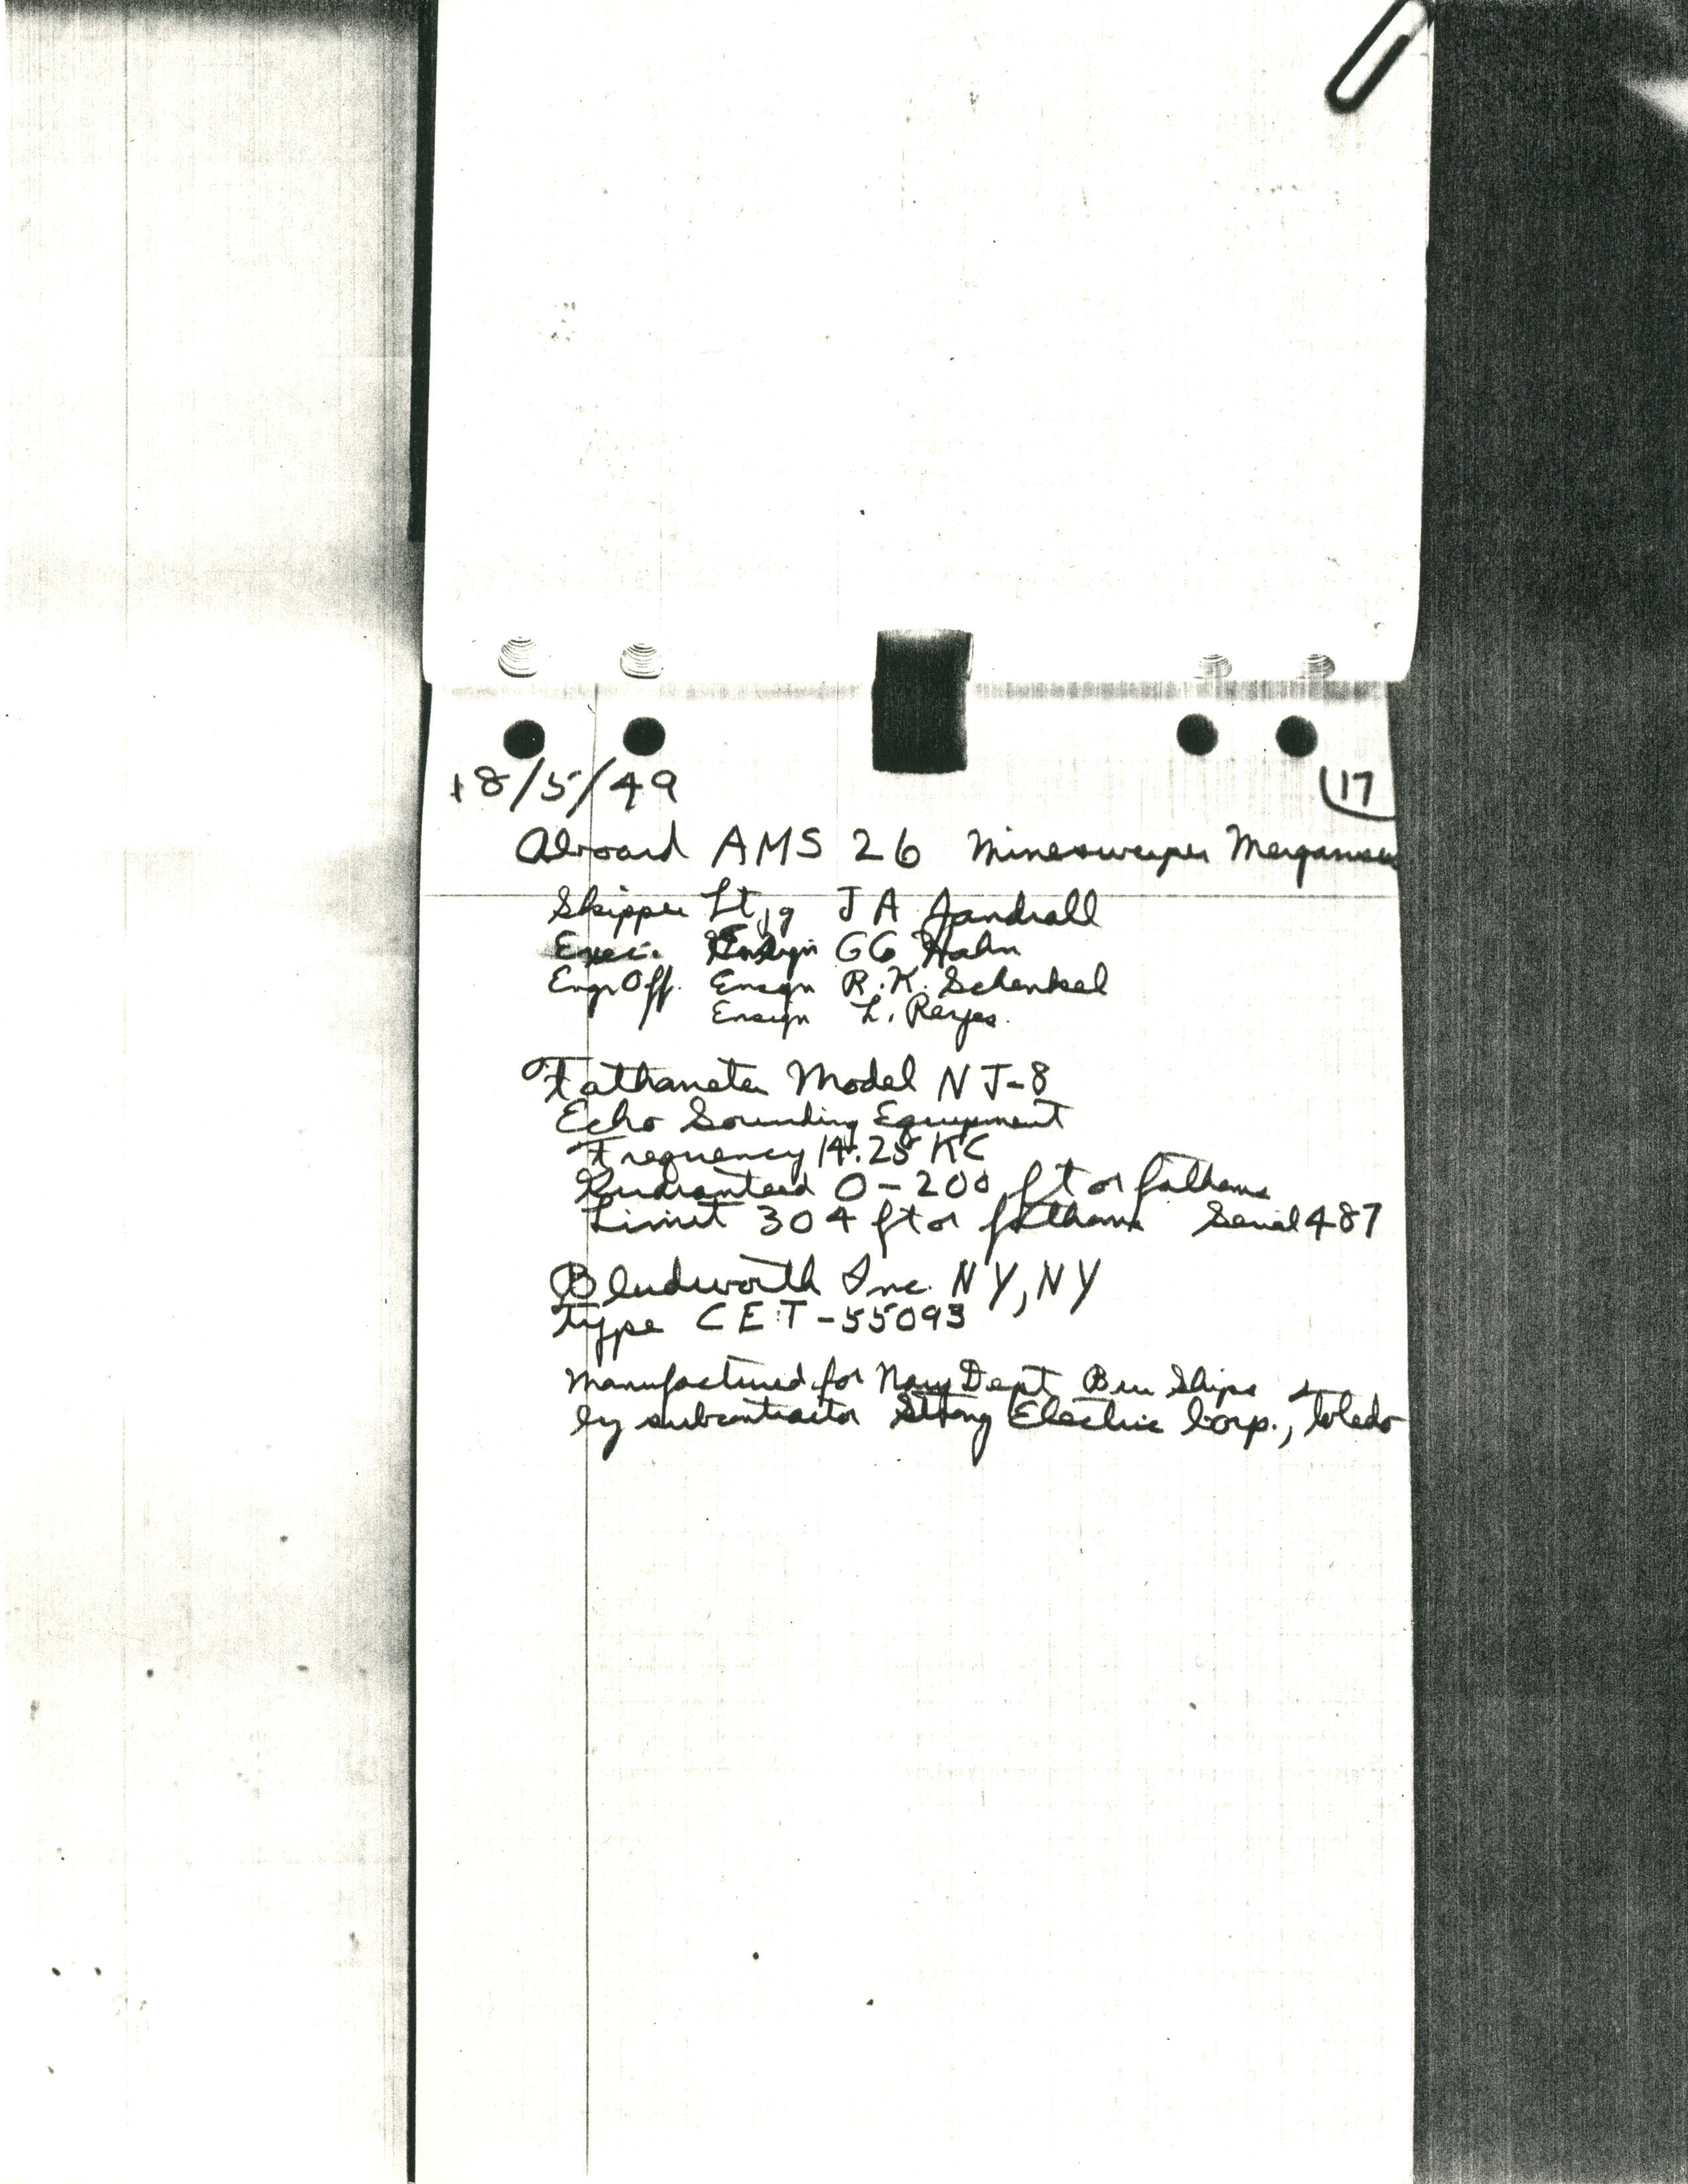 18/5/49
17
Aboard AMS 26 Minesweeper Merganser
Skipper Lt jg J A Jandrall
Exec. Ensign GG Hahn
Engr Off. Ensign R.K. Schenkel
Ensign L. Reyes.
Fathometer Model NJ-8
Echo Sounding Equipment
Frequency 14.25 KC
Guaranteed 0-200 ft or fathoms
Limit 304 ft or fathoms Serial 487
Bludworth Inc. NY, NY
Type CET-55093
Manufactured for Navy Dept Bu Ships
by subcontractor Strong Electric Corp., Toledo